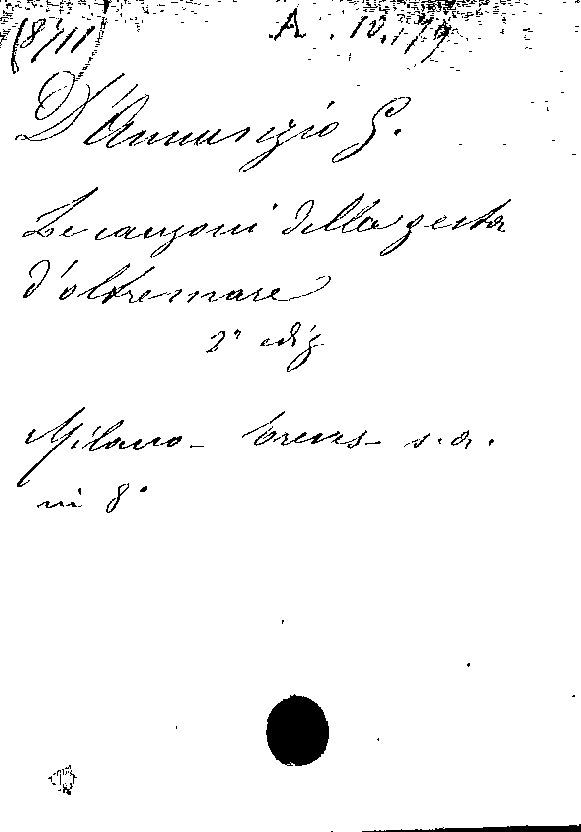 (8711)
A. 10.179
D'Annunzio G.
Le canzoni della gesta
d'oltremare
2ª ediz
Milano - Treves - s.a.
in 8°